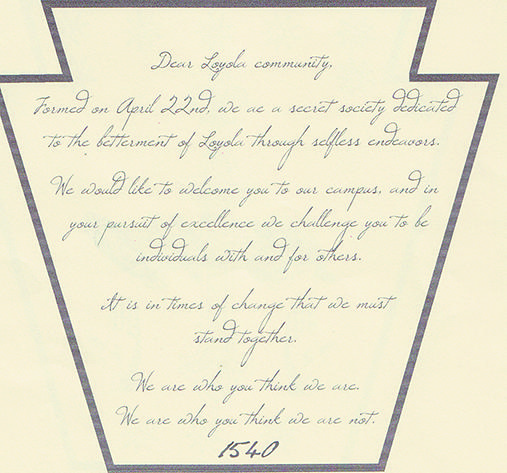 Dear Loyola community,
Formed on April 22nd, we ae a secret society dedicated
to the betterment of Loyola through selfless endeavors.
We would like to welcome you to our campus, and in
your pursuit of excellence we challenge you to be
individuals with and for others.
It is in times of change that we must
stand together.
We are who you think we are.
We are who you think we are not.
1540